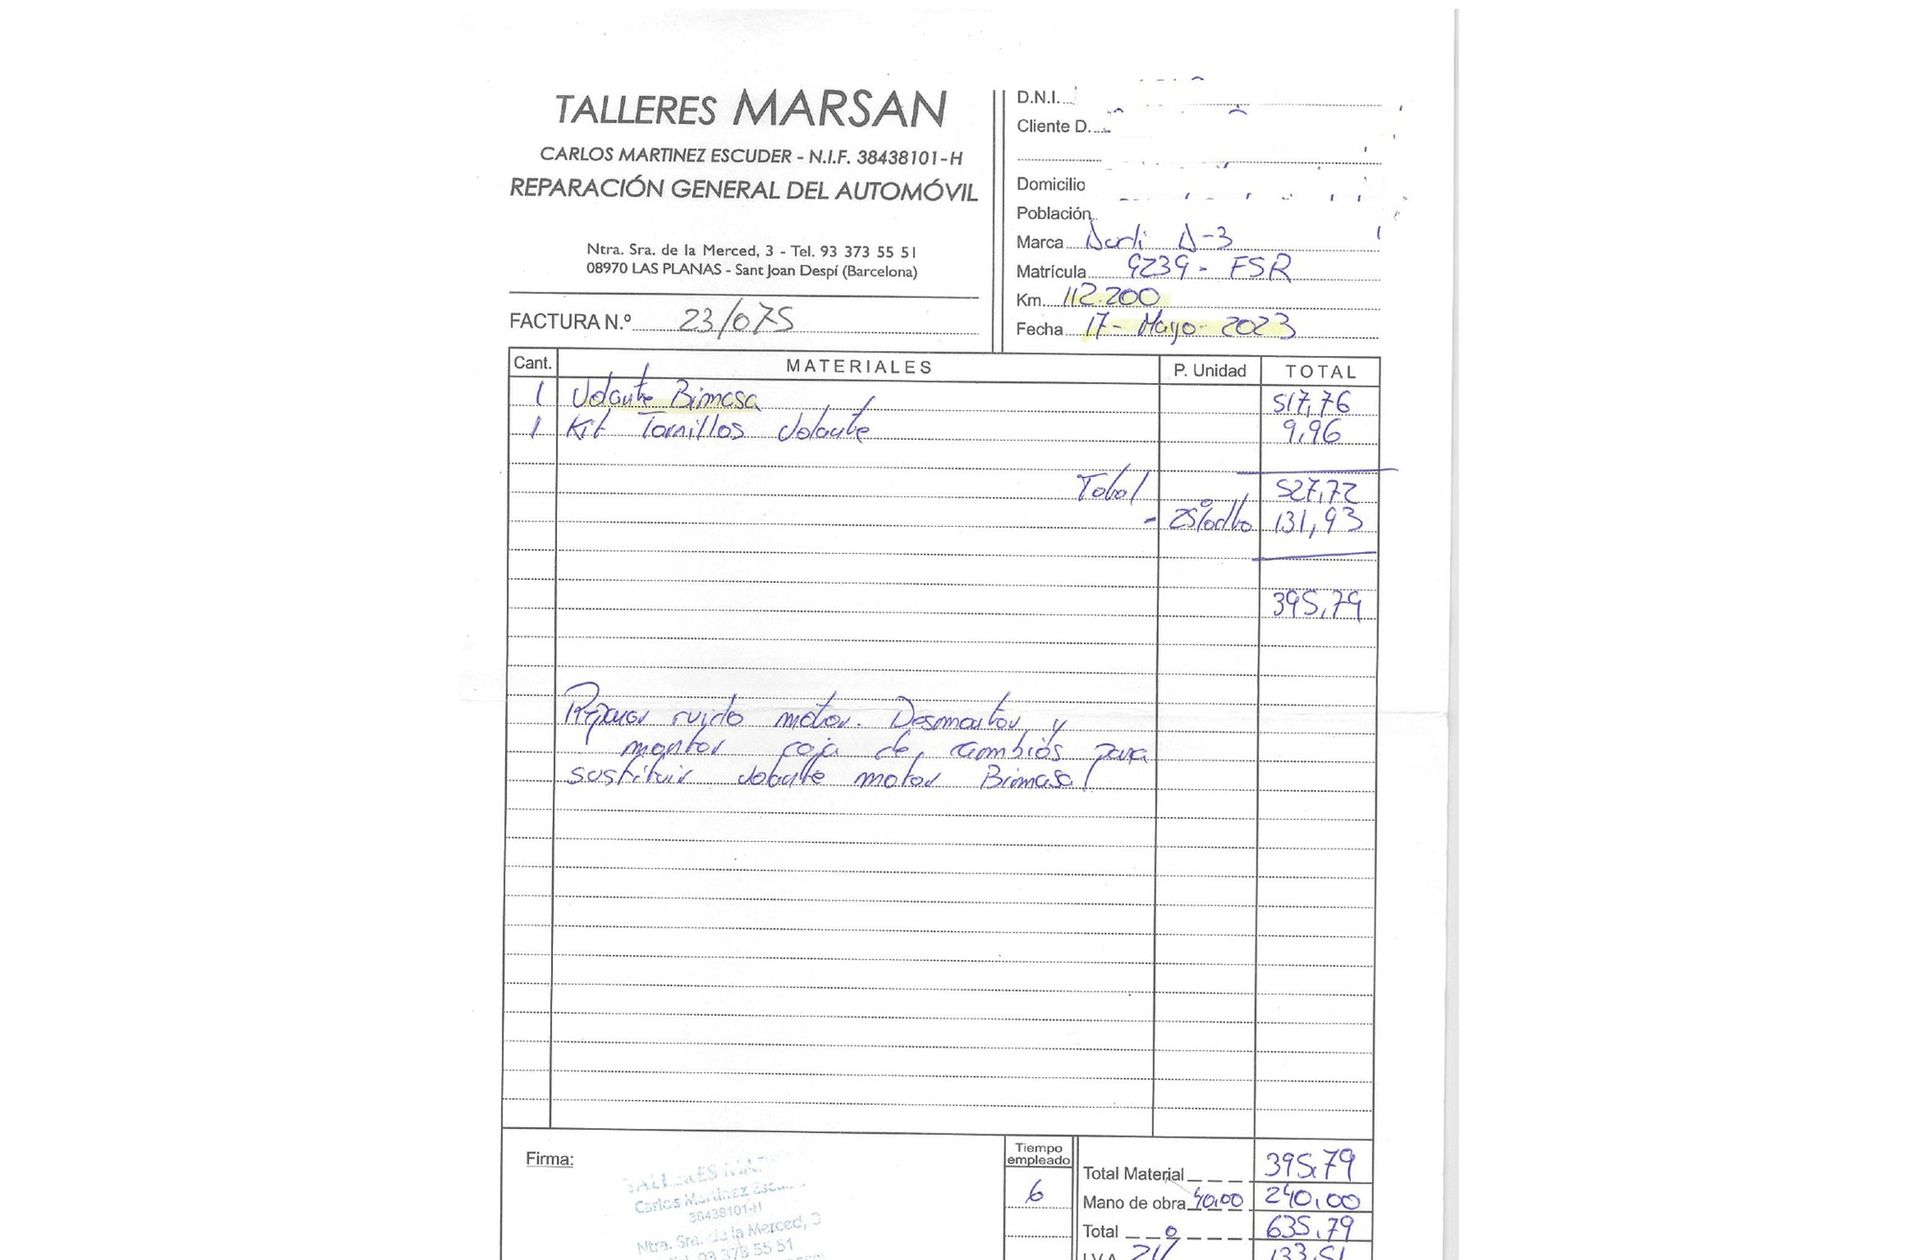 TALLERES MARSAN
CARLOS MARTINEZ ESCUDER - N.I.F. 38438101-H
REPARACIÓN GENERAL DEL AUTOMÓVIL
Ntra. Sra. de la Merced, 3 - Tel. 93 373 55 51
08970 LAS PLANAS - Sant Joan Despí (Barcelona)
FACTURA N.º 23/075
D.N.I.
Cliente D.
Domicilio
Población
Marca Audi A-3
Matrícula 9239 - FSR
Km. 112.200
Fecha 17 - Mayo - 2023
Cant. MATERIALES P. Unidad TOTAL
1 Volante Bimasa 517,76
1 Kit Tornillos Volante 9,96
Total 527,72
- 25% dto 131,93
395,79
Reparar ruido motor. Desmontar y
montar caja de cambios para
sustituir volante motor Bimasa
Firma:
TALLERES MAR
Carlos Martínez Escu
38438101-H
Ntra. Sra. de la Merced, 3
93 373 55 51
Tiempo
empleado
6
Total Material 395,79
Mano de obra 40,00 240,00
Total 635,79
I.V.A. 21% 133,51